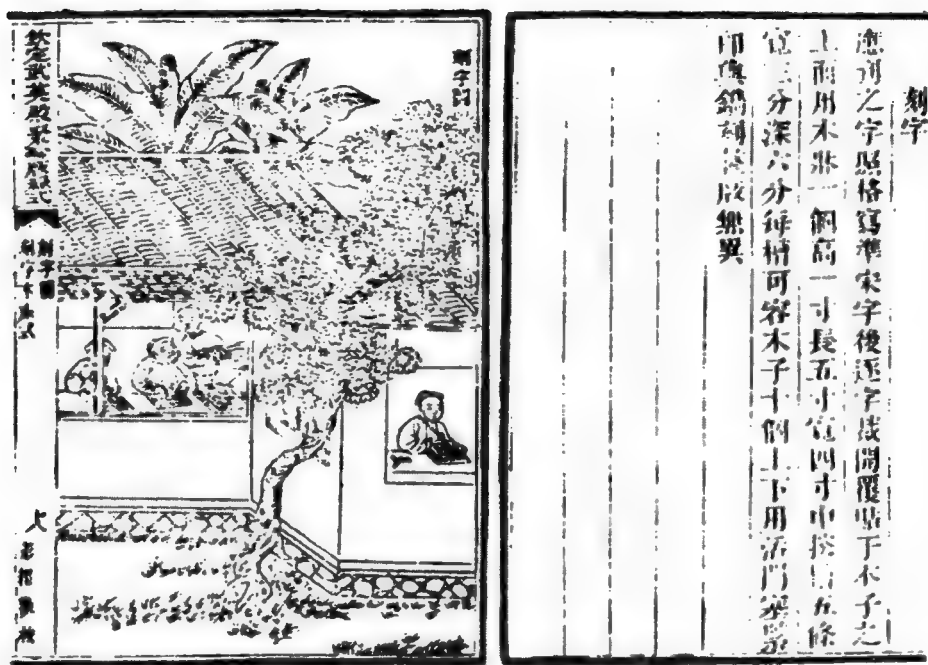 刻字
應刊之字照格寫準宋字後逐字裁開覆貼于木子之
上面用木牀一個高一寸長五寸寬四寸中挖槽五條
寬三分深六分每槽可容木子十個上下用活閂塞緊
即與鐫刻整版無異
刻字圖
欽定武英殿聚珍版程式
刻字圖
刻字木牀式